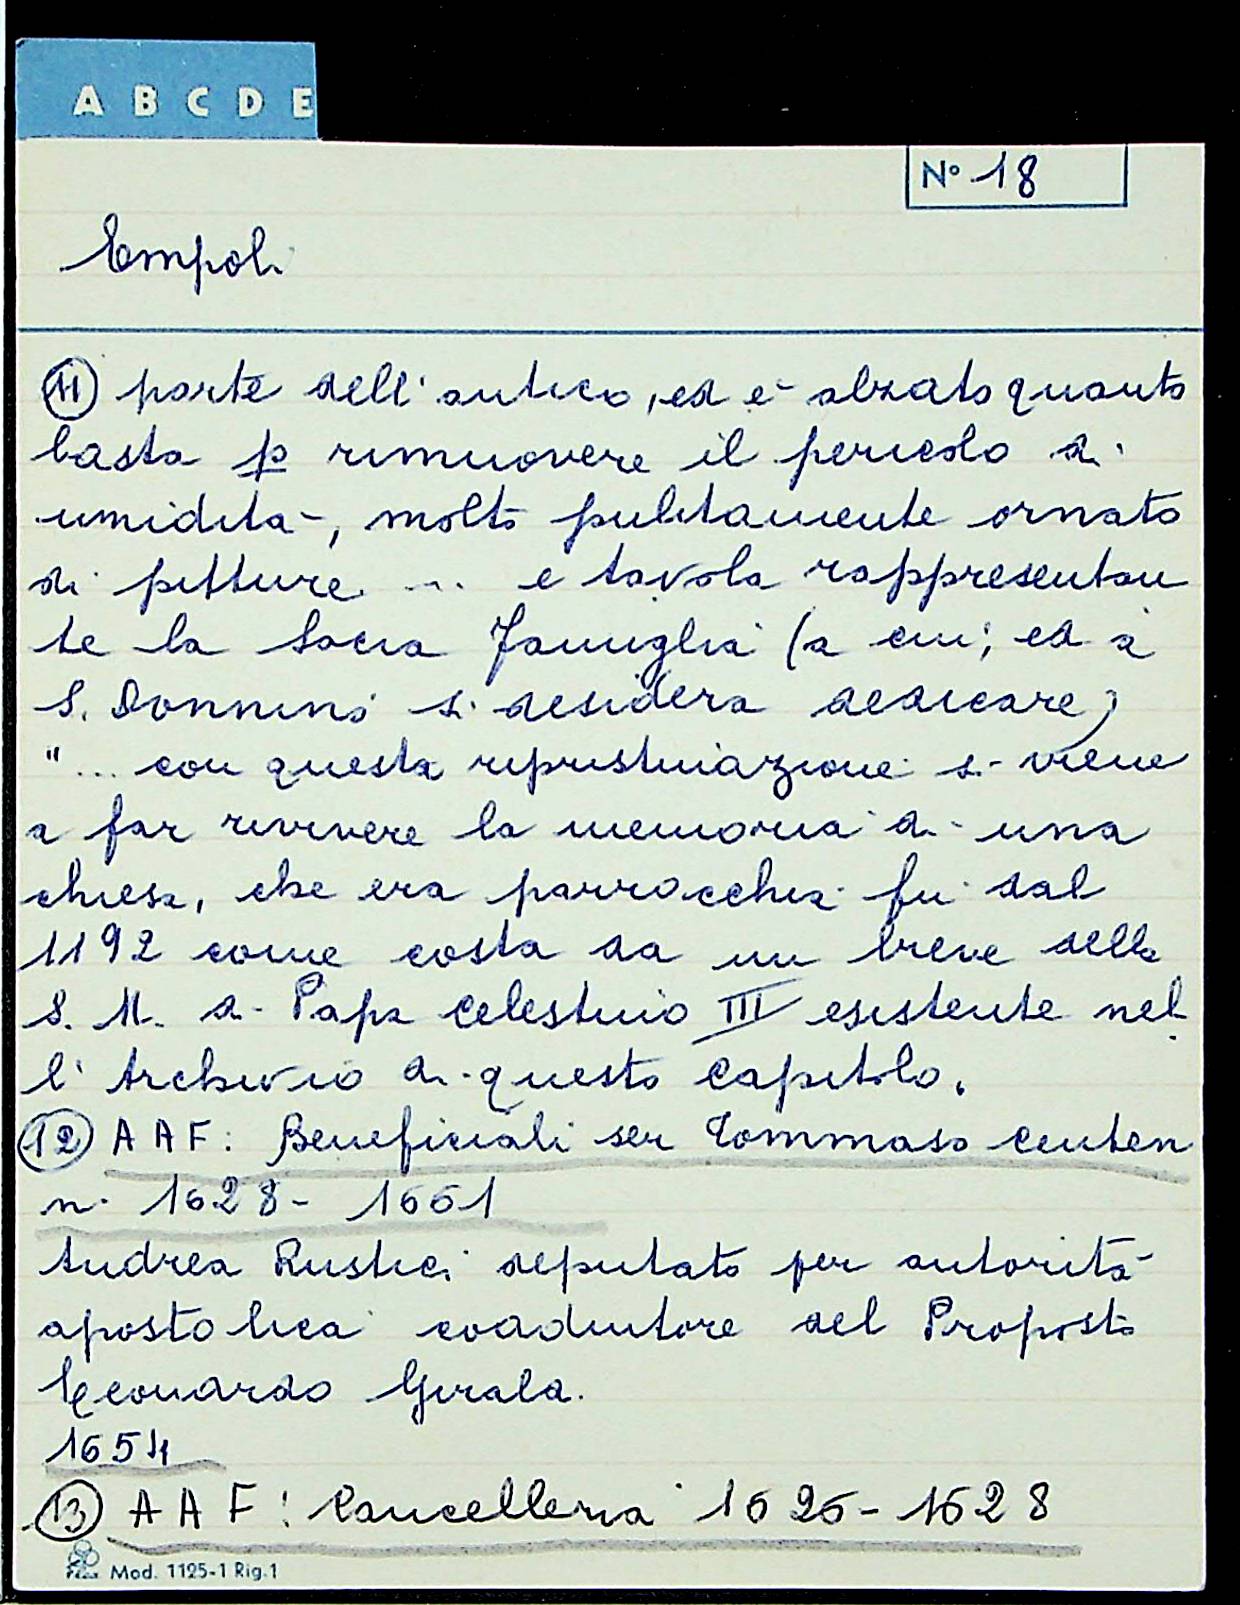 A B C D E
N° 18
Empoli
(11) parte dell'antico, ed è alzato quanto
basta p rimuovere il pericolo di
umidità, molto pulitamente ornato
di pitture ... e tavola rappresentan
te la Sacra Famiglia (a cui, ed a
S. Donnino si desidera dedicare)
"... con questa ripristinazione si viene
a far rivivere la memoria di una
chiesa, che era parrocchia fin dal
1192 come costa da un breve della
S. M. di Papa Celestino III esistente nel
l'Archivio di questo Capitolo.
(12) AAF: Beneficiali ser Tommaso Centen
ni 1628-1661
Andrea Rustici deputato per autorità
apostolica coadiutore del Proposto
Leonardo Girala.
1654
(13) AAF: Cancelleria 1626-1628
Mod. 1125-1 Rig.1